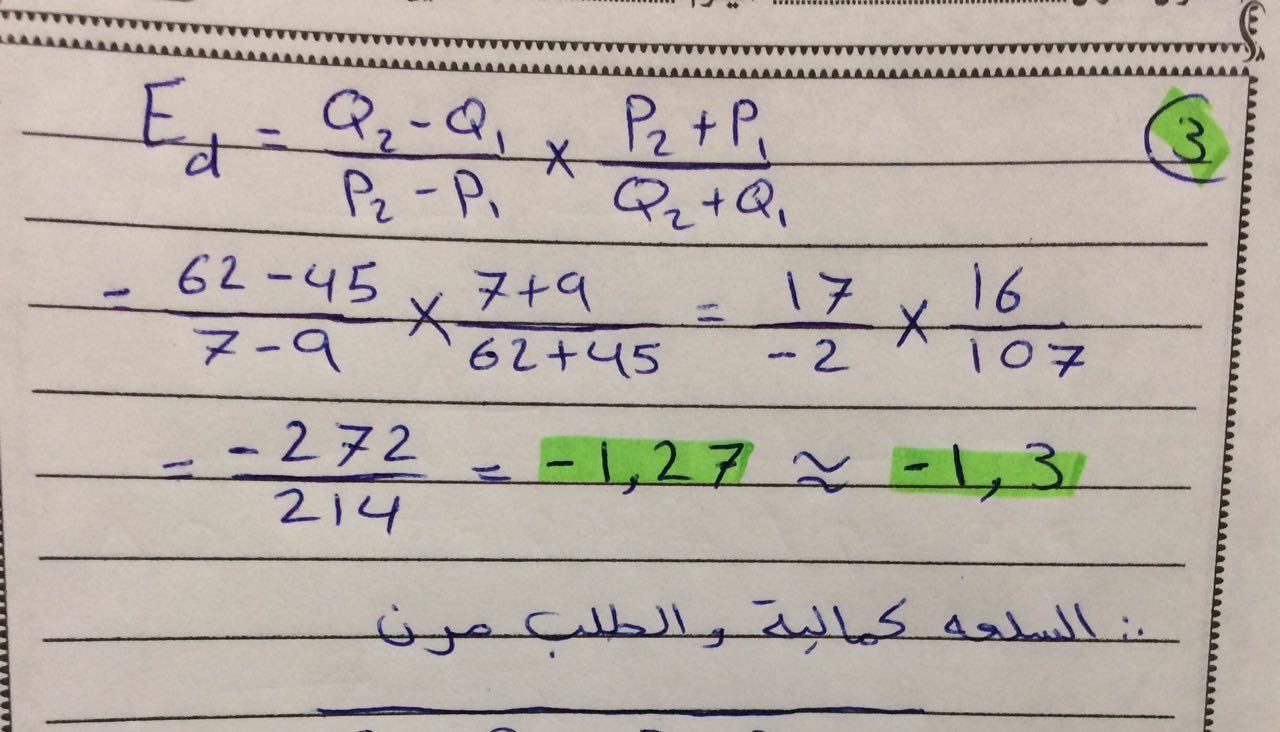 3
E_d = (Q₂ - Q₁)/(P₂ - P₁) × (P₂ + P₁)/(Q₂ + Q₁)
= (62 - 45)/(7 - 9) × (7 + 9)/(62 + 45) = 17/-2 × 16/107
= -272/214 = -1,27 ≈ -1,3
∴ السلعه كمالية والطلب مرن